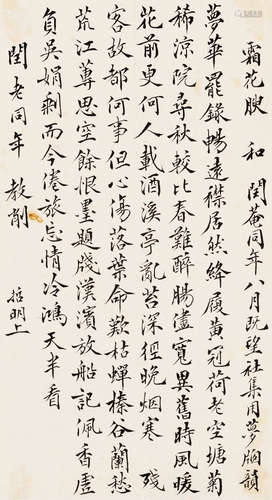 霜花腴 和閏菴同年八月既望社集用夢窗韻
夢華罷錄暢遠襟居然絳屐黃冠荷老空塘菊
稀涼院尋秋較比春難醉腸儘寬異舊時風暖
花前更何人載酒溪亭亂苔深徑晚烟寒 殘
客故都何事但心傷落葉命歎枯蟬榛谷蘭愁
荒江蓴思空餘恨墨題牋漢濱放船記佩香虛
負吳娟剩而今倦旅忘情冷鴻天半看
閏老同年 教削 哲明上